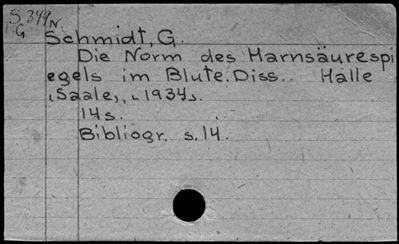 S.399N.
G
Schmidt, G.
Die Norm des Harnsäurespi
egels im Blute. Diss.. Halle
(Saale), (1934).
14s.
Bibliogr. s.14.